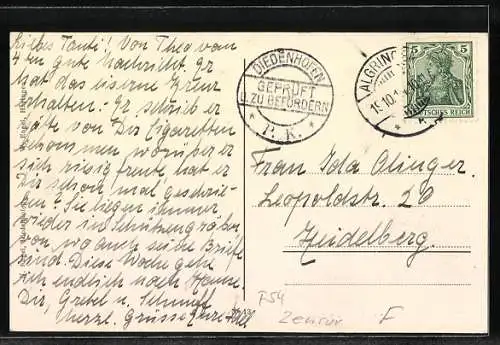 Liebes Tanti! Von Theo vom
4ten gute Nachricht. Er
hat das eiserne Kreuz
erhalten. Er schrieb er
hätte von Dir Zigaretten
bekommen worüber er
sich riesig freute hat er
Dir schon mal geschrie-
ben? Sie liegen immer
wieder im Schützengraben
von wo auch seine Briefe
sind. Diese Woche gehe
ich endlich nach Hause.
Dir, Gretel u.
herzl. Grüsse Eure
DIEDENHOFEN
GEPRÜFT
U. ZU BEFÖRDERN
* P. K. *
ALGRINGEN
5 5
DEUTSCHES REICH
Frau Ida Olinger
Leopoldstr. 26
Heidelberg.
F54
Zensur F